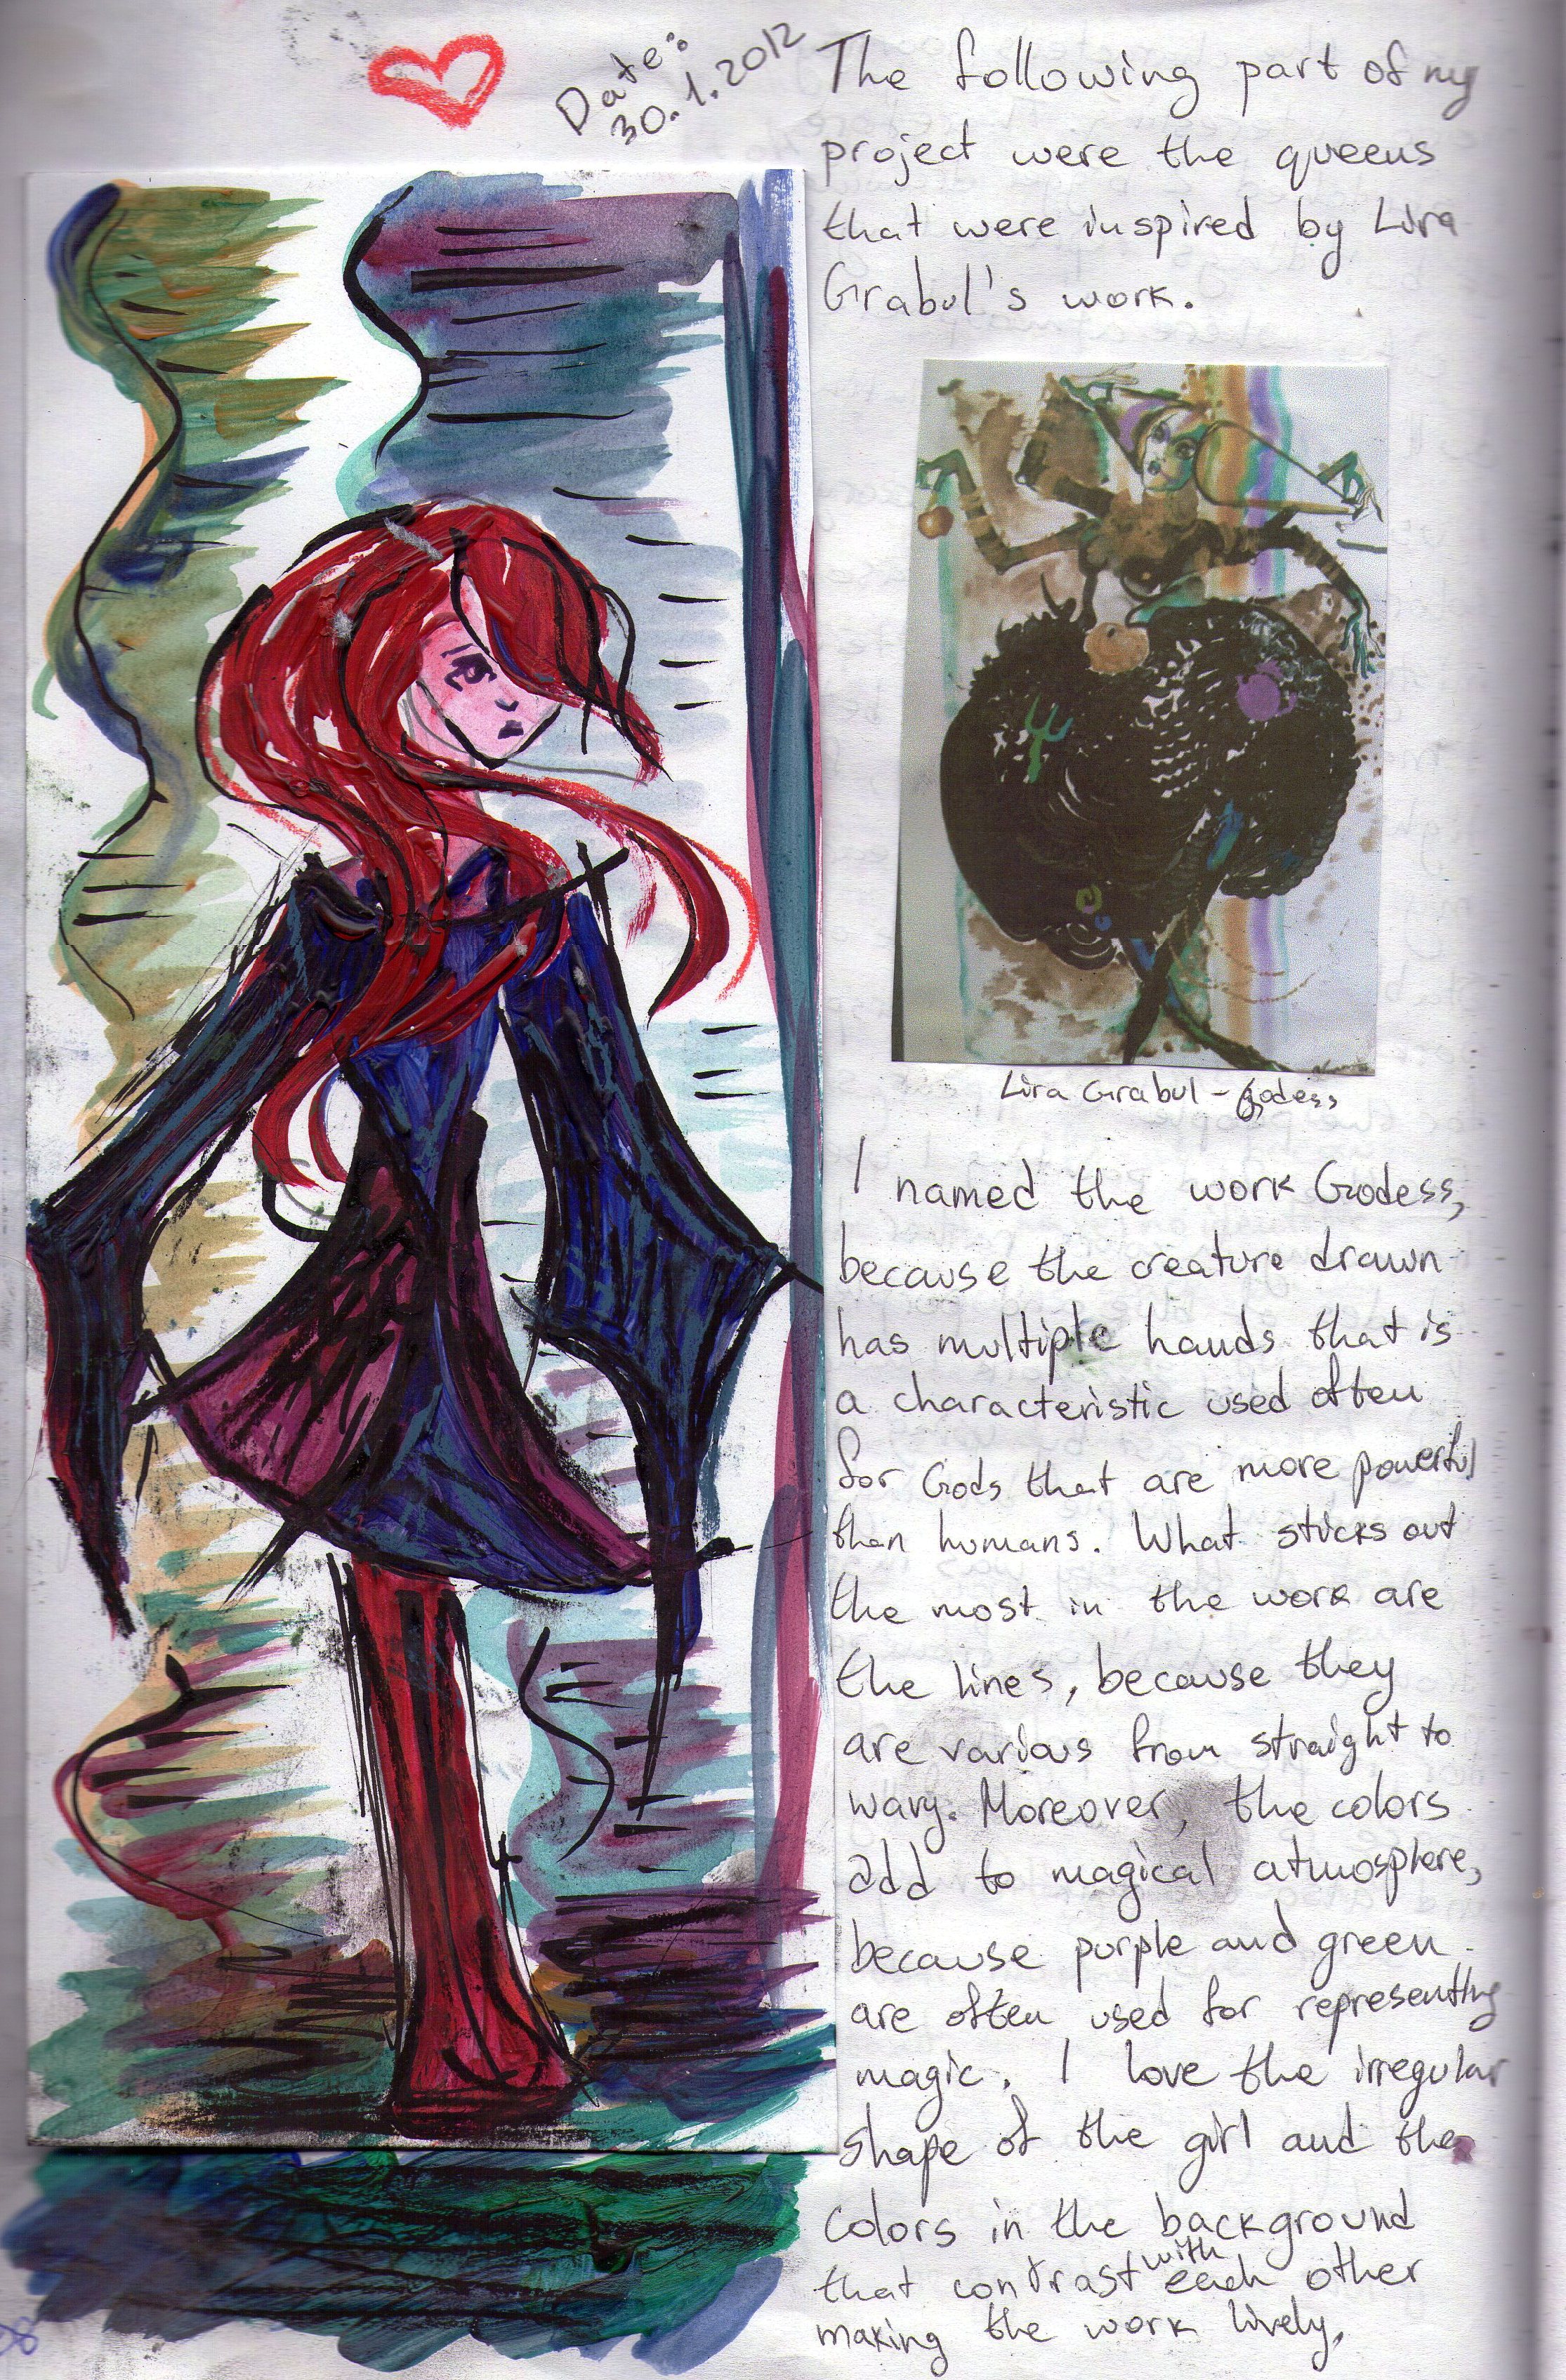 Date:
30.1.2012
The following part of my
project were the queens
that were inspired by Lira
Grabul's work.
Lira Grabul - godess
I named the work Godess,
because the creature drawn
has multiple hands that is
a characteristic used often
for Gods that are more powerful
than humans. What sticks out
the most in the work are
the lines, because they
are various from straight to
wavy. Moreover, the colors
add to magical atmosphere,
because purple and green
are often used for representing
magic. I love the irregular
shape of the girl and the
colors in the background
that contrast with each other
making the work lively.